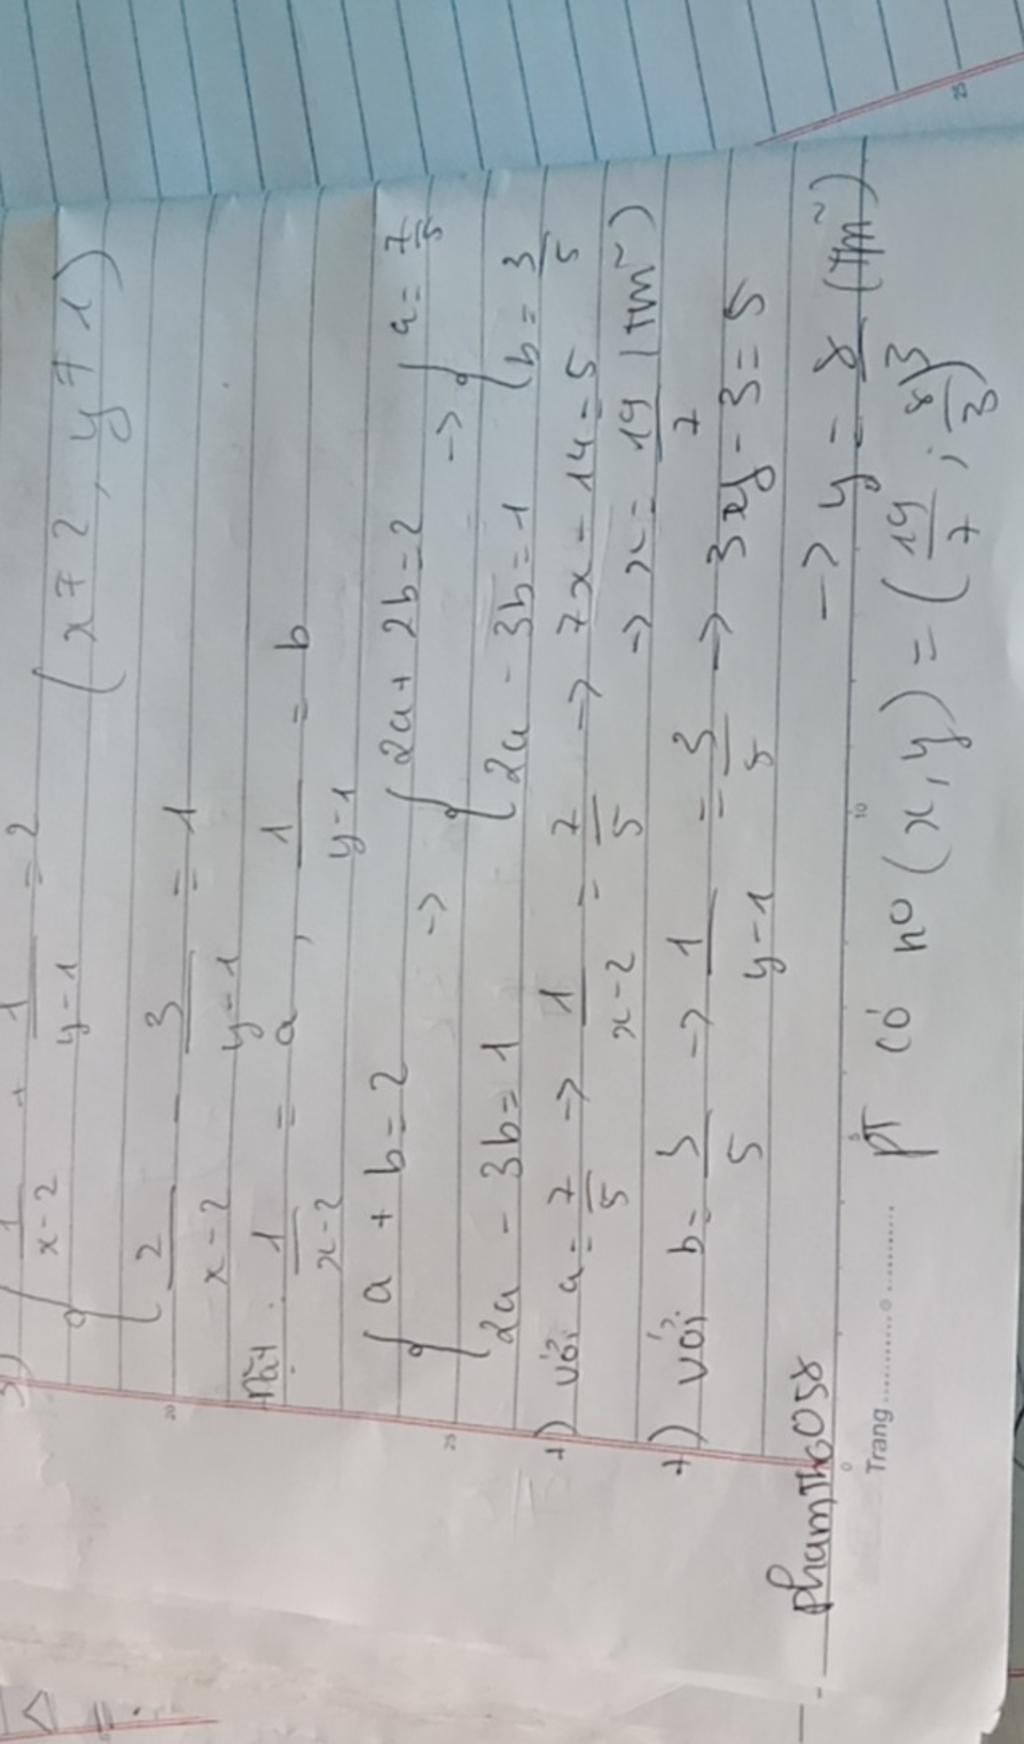 3)
{ 1/(x-2) + 1/(y-1) = 2
{ 2/(x-2) - 3/(y-1) = 1 ( x ≠ 2 , y ≠ 1 )
20
Đặt . 1/(x-2) = a , 1/(y-1) = b
{ a + b = 2 -> { 2a + 2b = 2 -> { a = 7/5
{ 2a - 3b = 1 { 2a - 3b = 1 { b = 3/5
25
+) với a = 7/5 -> 1/(x-2) = 7/5 -> 7x - 14 = 5
-> x = 19/7 (tm)
+) với b = 3/5 -> 1/(y-1) = 3/5 -> 3y - 3 = 5
-> y = 8/3 (tm)
PT có no (x,y) = (19/7 ; 8/3)
phamTh6058
Trang
0 5 10
25